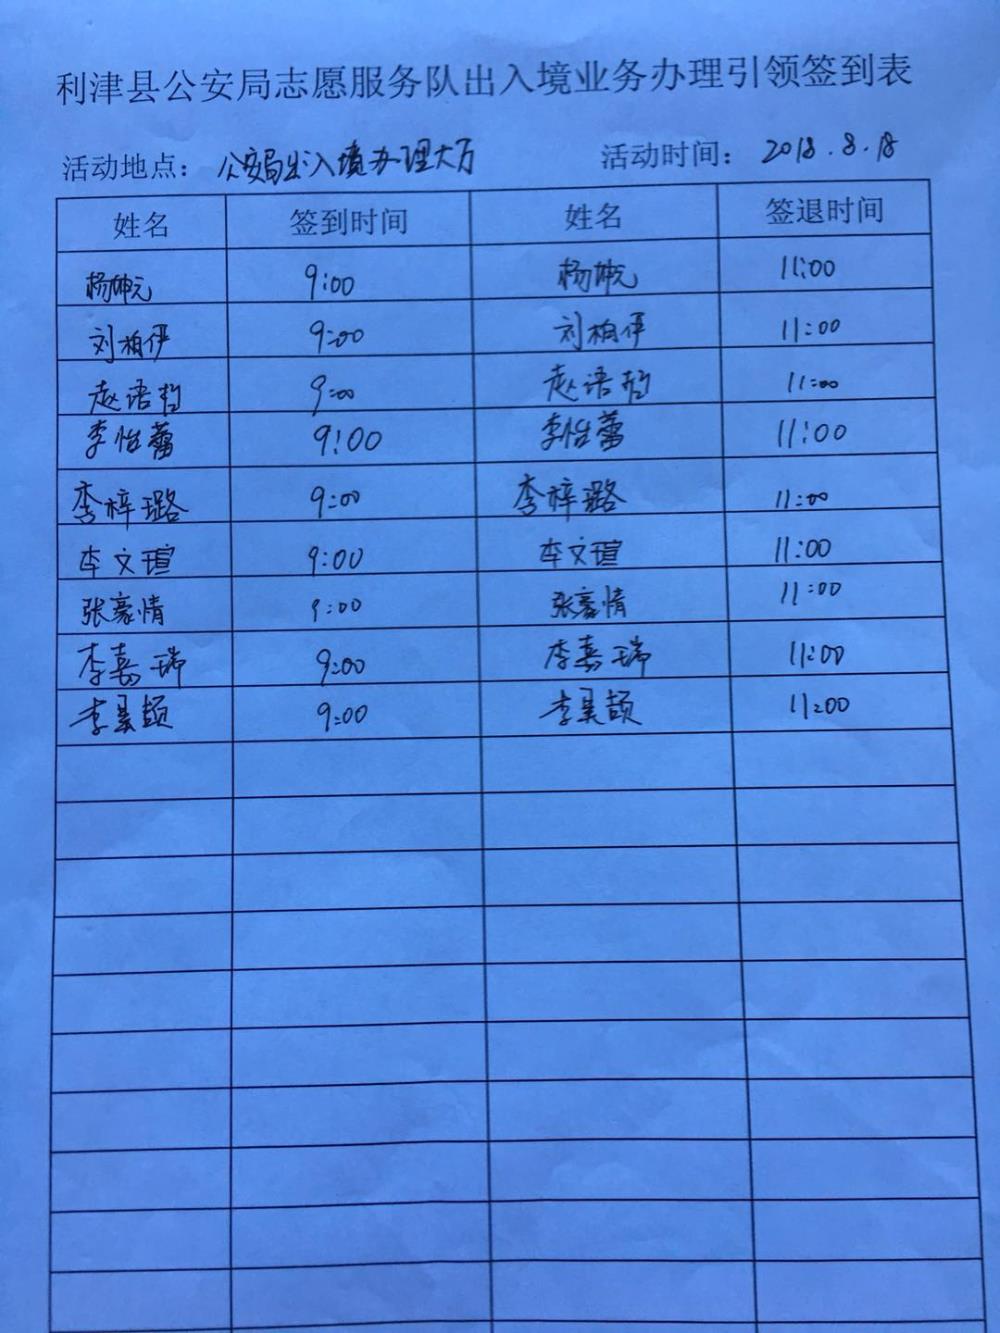 利津县公安局志愿服务队出入境业务办理引领签到表
活动地点：公安局出入境办理大厅 活动时间：2018.8.18
姓名 签到时间 姓名 签退时间
杨坤元 9:00 杨坤元 11:00
刘柏伊 9:00 刘柏伊 11:00
赵语哲 9:00 赵语哲 11:00
李怡蕾 9:00 李怡蕾 11:00
李梓璐 9:00 李梓璐 11:00
李文瑄 9:00 李文瑄 11:00
张豪情 9:00 张豪情 11:00
李嘉瑞 9:00 李嘉瑞 11:00
李昊颉 9:00 李昊颉 11:00